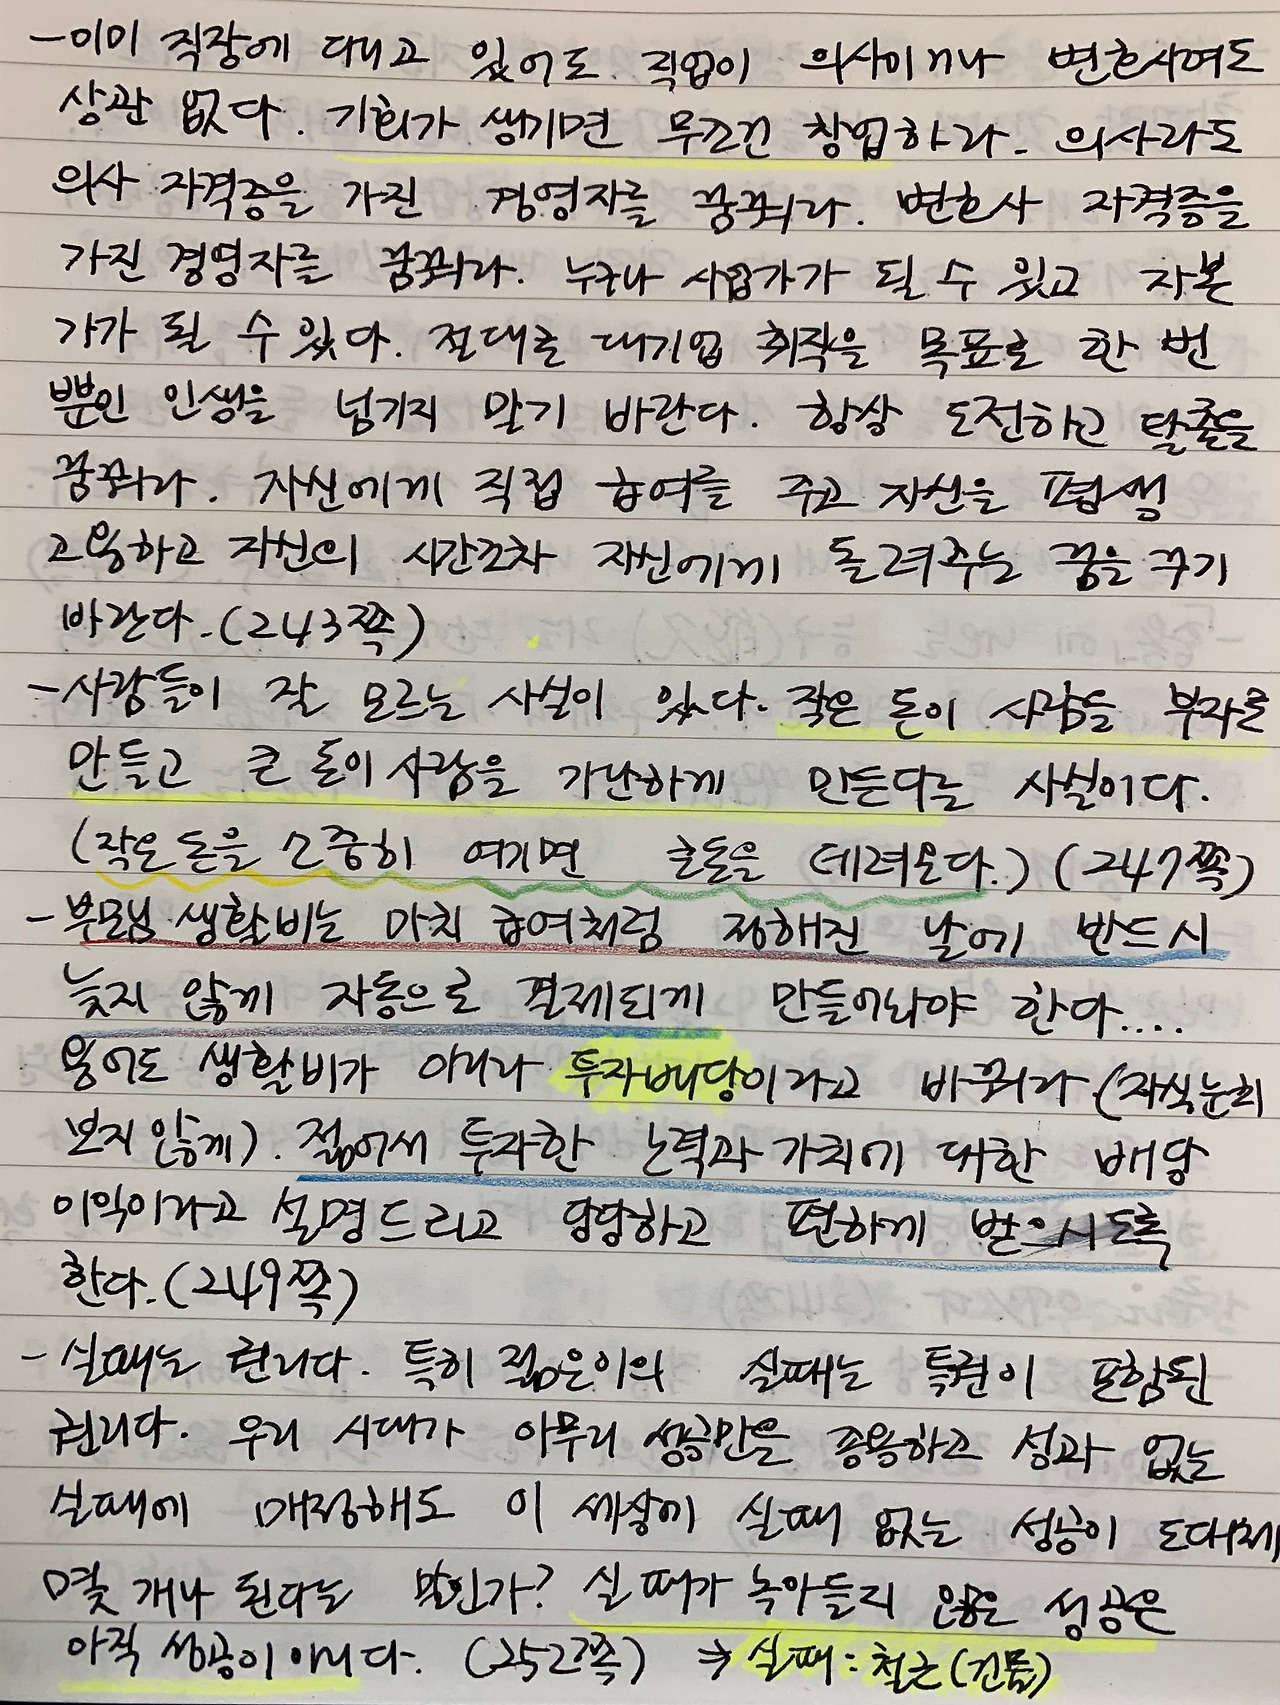 -이미 직장에 다니고 있어도 직업이 의사이거나 변호사여도
상관 없다. 기회가 생기면 무조건 창업하라. 의사라도
의사 자격증을 가진 경영자를 꿈꿔라. 변호사 자격증을
가진 경영자를 꿈꿔라. 누구나 사업가가 될 수 있고 자본
가가 될 수 있다. 절대로 대기업 취직을 목표로 한 번
뿐인 인생을 넘기지 말기 바란다. 항상 도전하고 탈출을
꿈꿔라. 자신에게 직접 급여를 주고 자신을 평생
고용하고 자신의 시간조차 자신에게 돌려주는 꿈을 꾸기
바란다.(243쪽)
-사람들이 잘 모르는 사실이 있다. 작은 돈이 사람을 부자로
만들고 큰 돈이 사람을 가난하게 만든다는 사실이다.
(작은 돈을 소중히 여기면 큰돈을 데려온다.) (247쪽)
-부모님 생활비는 마치 급여처럼 정해진 날에 반드시
늦지 않게 자동으로 결제되게 만들어놔야 한다....
용어도 생활비가 아니라 투자배당이라고 바꿔라(자식눈치
보지 않게). 젊어서 투자한 노력과 가치에 대한 배당
이익이라고 설명드리고 당당하고 편하게 받으시도록
한다.(249쪽)
-실패는 권리다. 특히 젊은이의 실패는 특권이 포함된
권리다. 우리 시대가 아무리 성공만을 종용하고 성과 없는
실패에 매정해도 이 세상에 실패 없는 성공이 도대체
몇 개나 된다는 말인가? 실패가 녹아들지 않은 성공은
아직 성공이 아니다. (252쪽) → 실패: 철근(건물)